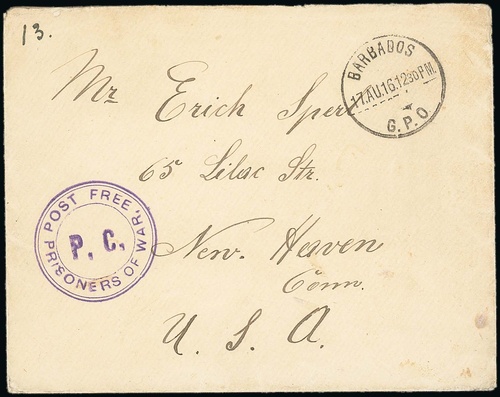 13.
BARBADOS
17.AU.16.12³⁰P.M.
G.P.O
Mr Erich
65 Lilac Str.
POST FREE,
PRISONERS OF WAR,
P. C.
New. Heaven
Conn.
U. S. A.